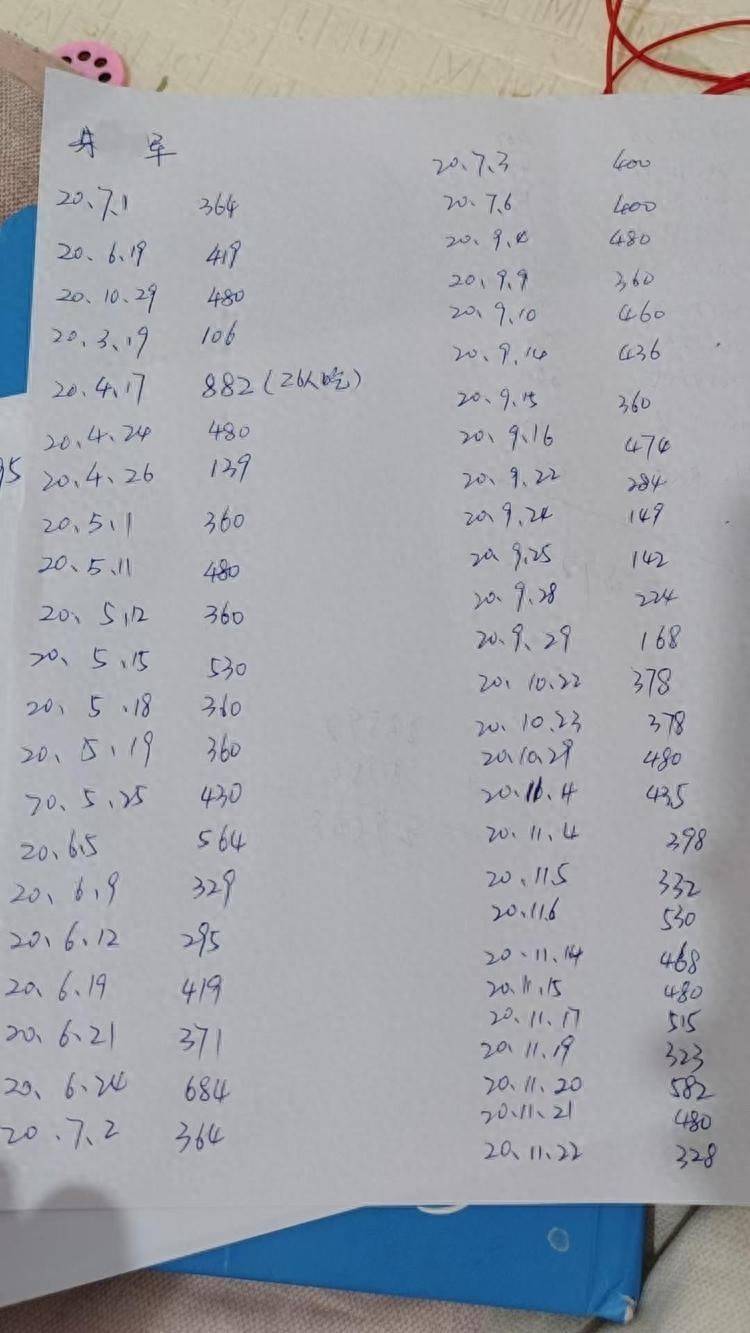 丹 军
20、7、1 364
20、6、19 419
20、10、29 480
20、3、19 106
20、4、17 882(26人吃)
20、4、24 480
20、4、26 139
20、5、1 360
20、5、11 480
20、5、12 360
20、5、15 530
20、5、18 360
20、5、19 360
20、5、25 430
20、6、5 564
20、6、9 329
20、6、12 295
20、6、19 419
20、6、21 371
20、6、24 684
20、7、2 364
20、7、3 400
20、7、6 400
20、9、4 480
20、9、9 360
20、9、10 460
20、9、14 436
20、9、15 360
20、9、16 474
20、9、22 284
20、9、24 149
20、9、25 142
20、9、28 224
20、9、29 168
20、10、22 378
20、10、23 378
20、10、29 480
20、11、4 435
20、11、4 398
20、11、5 332
20、11、6 530
20、11、14 468
20、11、15 480
20、11、17 515
20、11、19 323
20、11、20 582
20、11、21 480
20、11、22 328